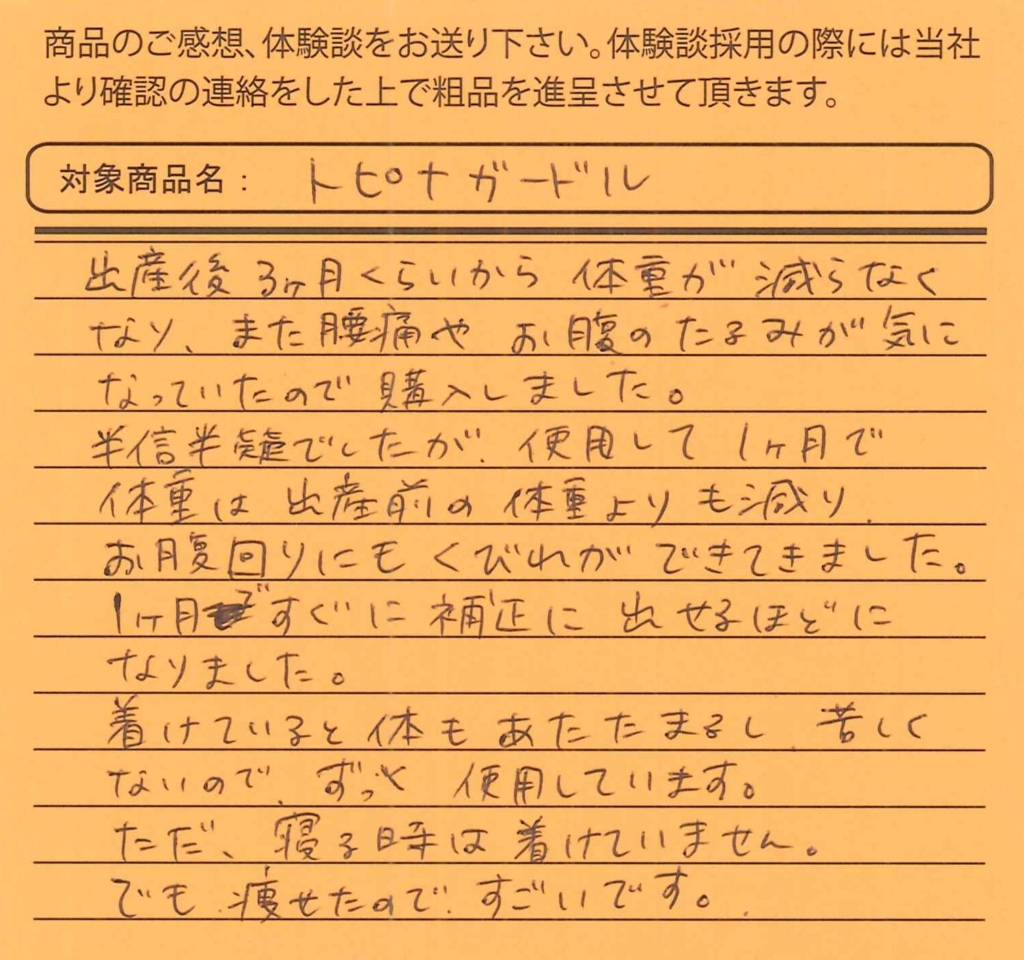 商品のご感想、体験談をお送り下さい。体験談採用の際には当社
より確認の連絡をした上で粗品を進呈させて頂きます。
対象商品名： トピナガードル
出産後3ヶ月くらいから 体重が 減らなく
なり、また腰痛や お腹のたるみが気に
なっていたので 購入しました。
半信半疑でしたが、使用して 1ヶ月で
体重は 出産前の 体重よりも減り、
お腹回りにも くびれが できてきました。
1ヶ月ですぐに 補正に 出せるほどに
なりました。
着けていると 体も あたたまるし 苦しく
ないので、ずっと 使用しています。
ただ、寝る時は 着けていません。
でも 痩せたので、すごいです。